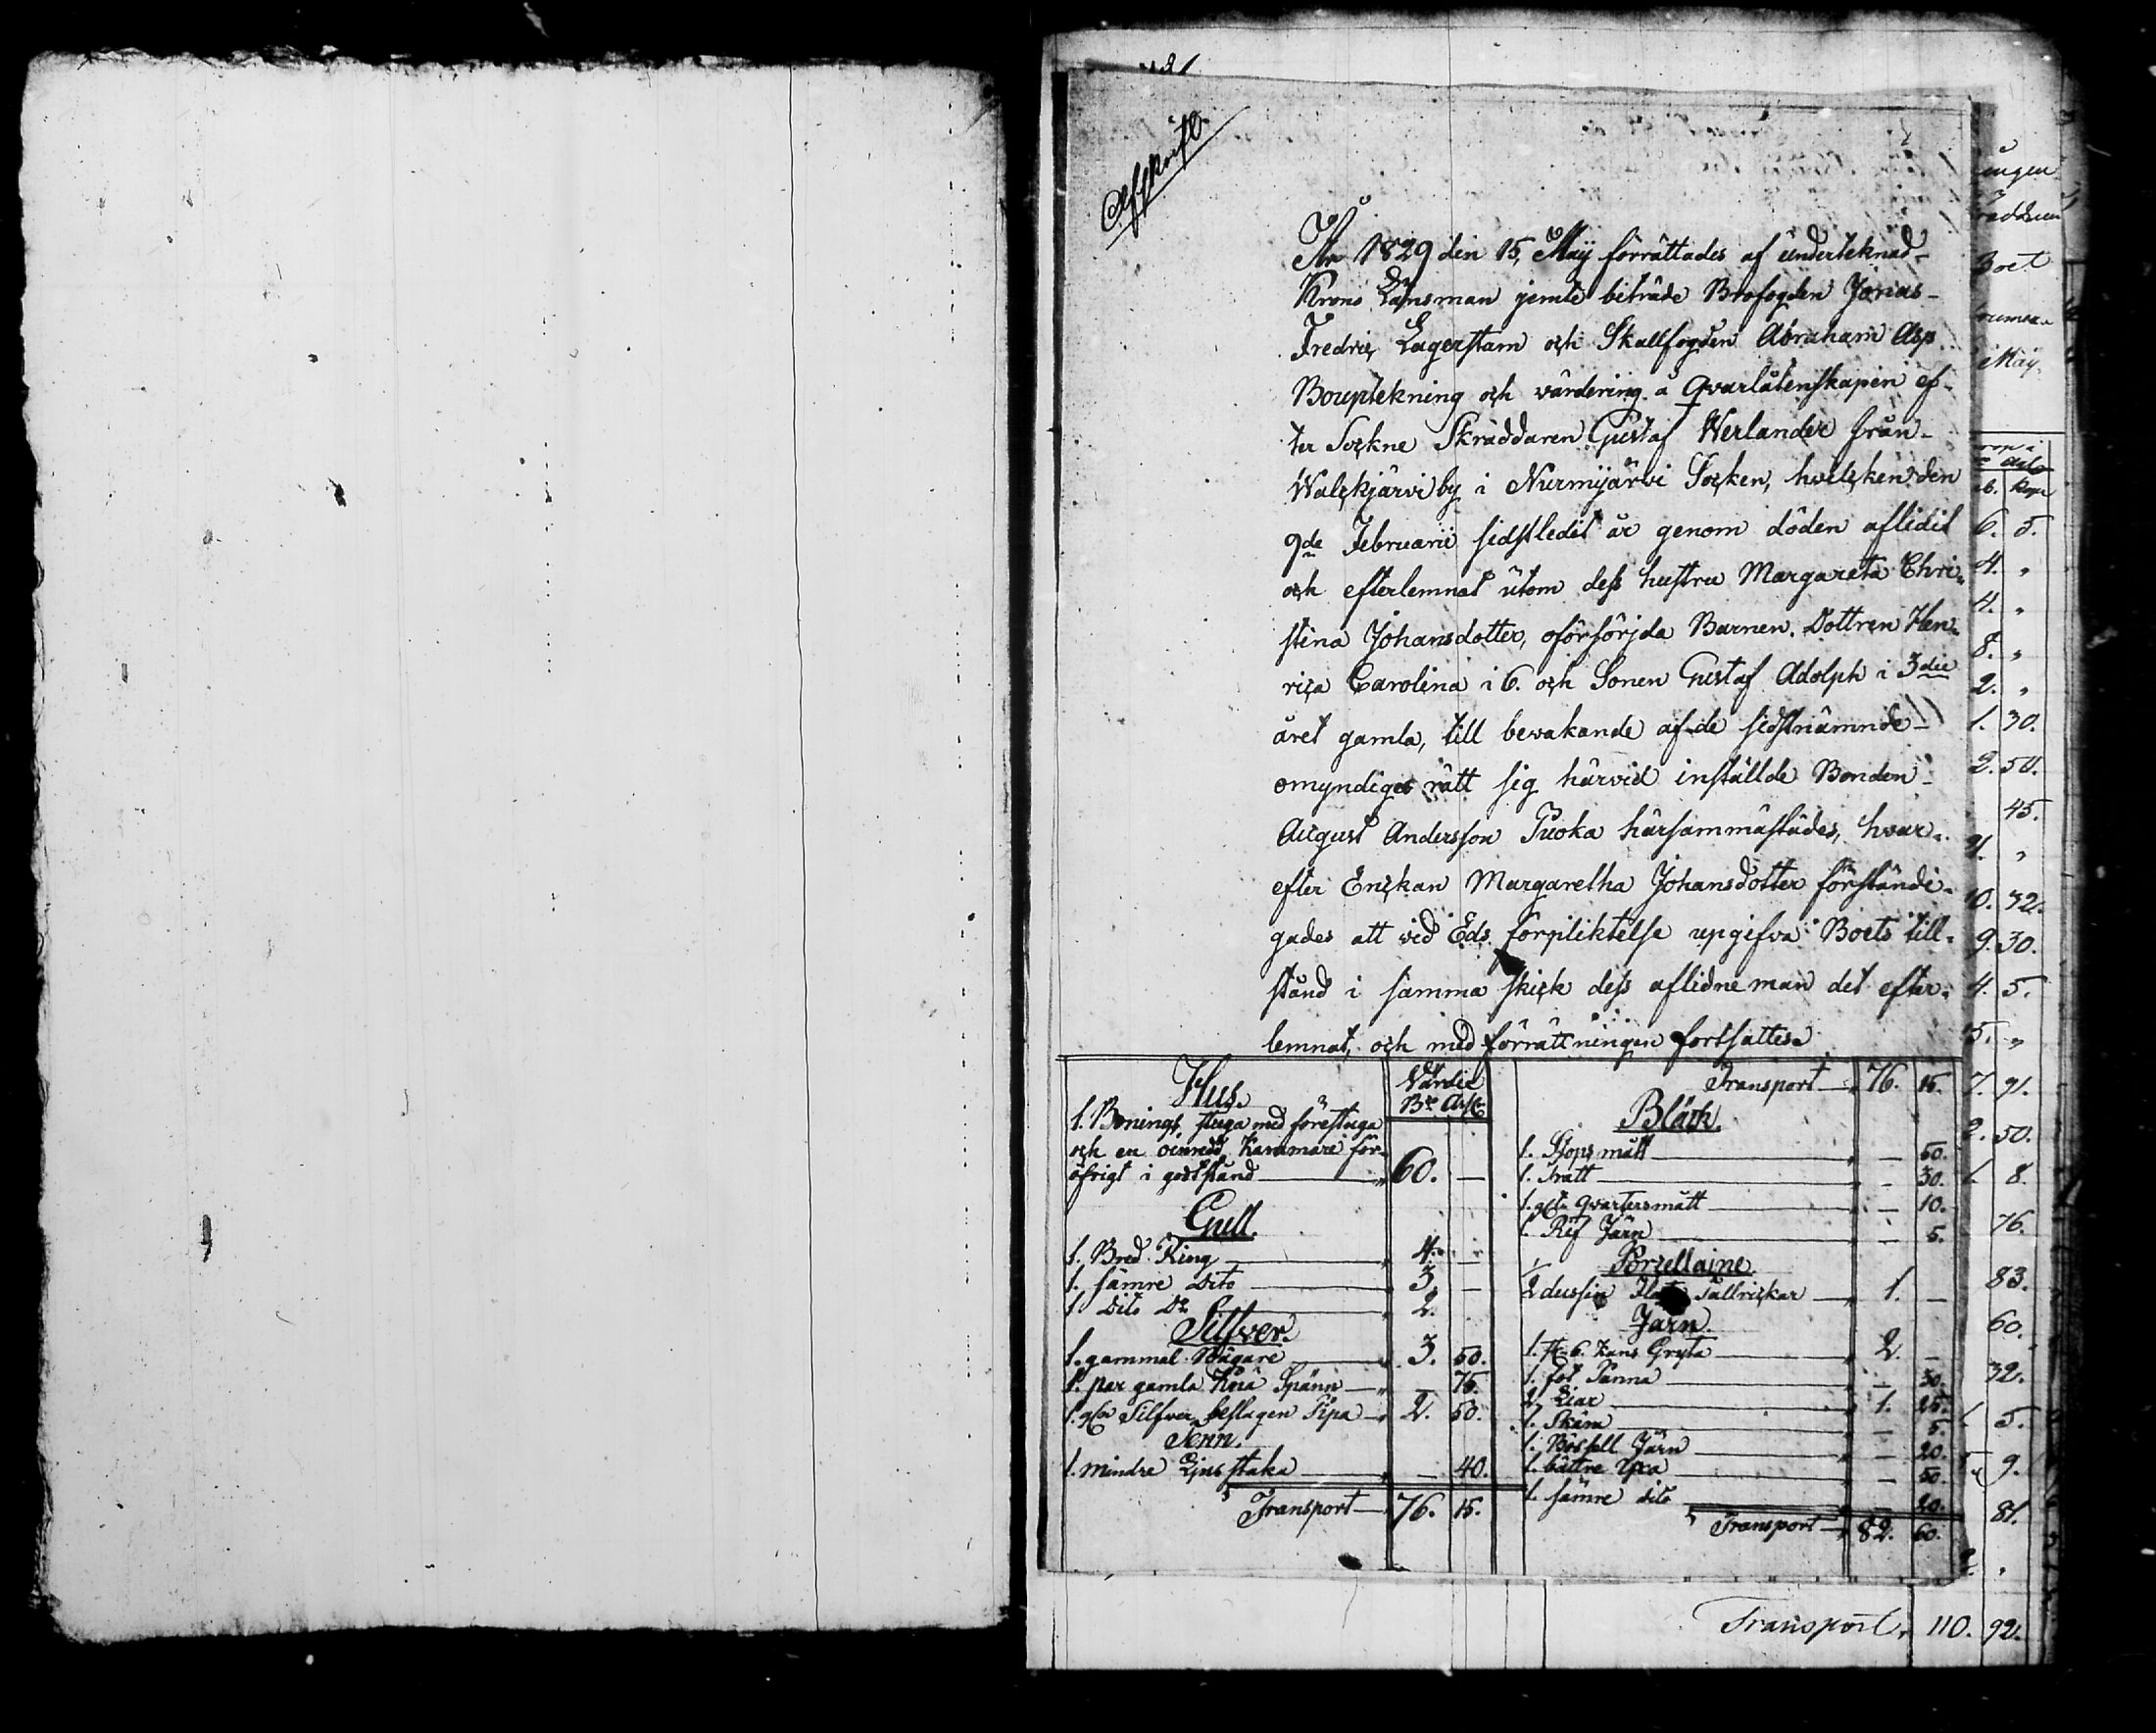 Afskrift.
År 1829 den 15, Maÿ förrättades af undertecknad
Krono Länsman jemte biträde Brofogden Jonas
Fredric Lagerstam och Skallfogden Abraham Asp
Bouptekning och värdering å Qvarlåtenskapen ef-
ter Sockne Skräddaren Gustaf Werlander från
Walckjärvi by i Nurmijärvi Socken, hvilcken den
9de Februarii sidstledit år genom döden aflidit
och efterlemnat utom dess hustru Margareta Chri-
stina Johansdotter, oförsörjda Barnen, Dottren Hen-
rica Carolina i 6. och Sonen Gustaf Adolph i 3die
året gamla, till bevakande af de sidstnämnde
omyndiges rätt sig härvid instälde Bonden
August Andersson Puoka härsammastädes, hvar-
efter Enckan Margaretha Johansdotter förständi-
gades att vid Eds förpliktelse upgifva Boets till-
stånd i samma skick dess aflidne man det efter-
lemnat, och med förrättningen fortsattes
Hus.
Värdie
1. Bonings stuga med förestuga
och en oinredd Kammare för
öfrigt i godt stånd 60. —
Gull.
1. Bred Ring 4. —
1. sämre dito 3. —
1. dito Do 2.
Silfver.
1. gammal Bägare 3. 50.
1. par gamla Knä Spänn — 75.
1. Silfver beslagen Pipa 2. 50.
Tenn.
1. mindre Ljus staka — 40.
Transport 76. 15.
Transport 76. 15.
Bläck.
1. Stops mått — 50.
1. Tratt — 30.
1. qvartersmått — 10.
1. Rif Järn — 5.
Porcellaine.
1/2 dussin Tallrickar 1. —
Järn.
1. 6. Kans Gryta 2. —
1. fot Panna — 30.
2. Liar 1. 25.
1. Skära — 5.
1. Järn — 20.
1. bättre Yxa — 50.
1. sämre dito — 20.
Transport 82. 60.
ungen
Boet
Maÿ
6. 5.
4. "
4. "
8. "
2. "
1. 30.
2. 50.
45.
"
10. 32.
9. 30.
4. 5.
5. "
7. 91.
2. 50.
1. 8.
76.
83.
60.
32.
5.
9.
81.
Transport, 110. 92.